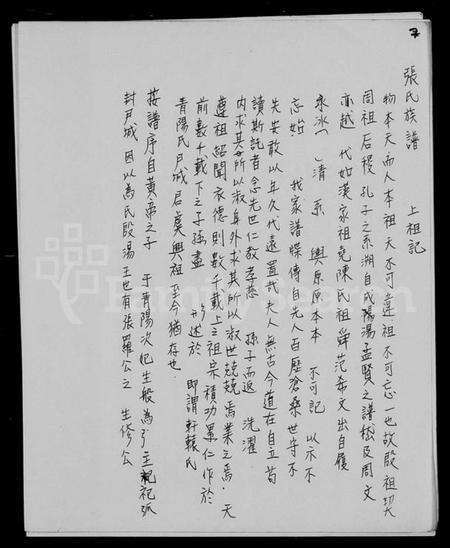 張氏族譜　上祖記
物本天而人本祖天不可違祖不可忘一也故殷祖契
周祖后稷孔子之系溯自成湯孟賢之譜松及周文
亦越　代如漢家祖堯陳氏祖舜范希文出自履
泉冰　清系　與原原本本　不可記　以示不
忘始　我家譜牒傳自先人百歷滄桑世守不
失安敢以年久代遠置哉夫人無古今道在自立苟
讀斯託者念先世仁教孝慈　孫子而返　洗濯
內求其所以淑身外求其所以淑世兢兢焉業之焉　天
遵祖紹聞衣德則數千載上之祖宗積功累仁作於
前數千載下之子孫盡　述於　即謂軒轅氏
青陽氏尸城君虞興祖至今猶存也
按譜序自黃帝之子　于青陽次妃生般為弓主祀弧
封尸城因以為氏殷湯王也有張羅公之　生修公
7